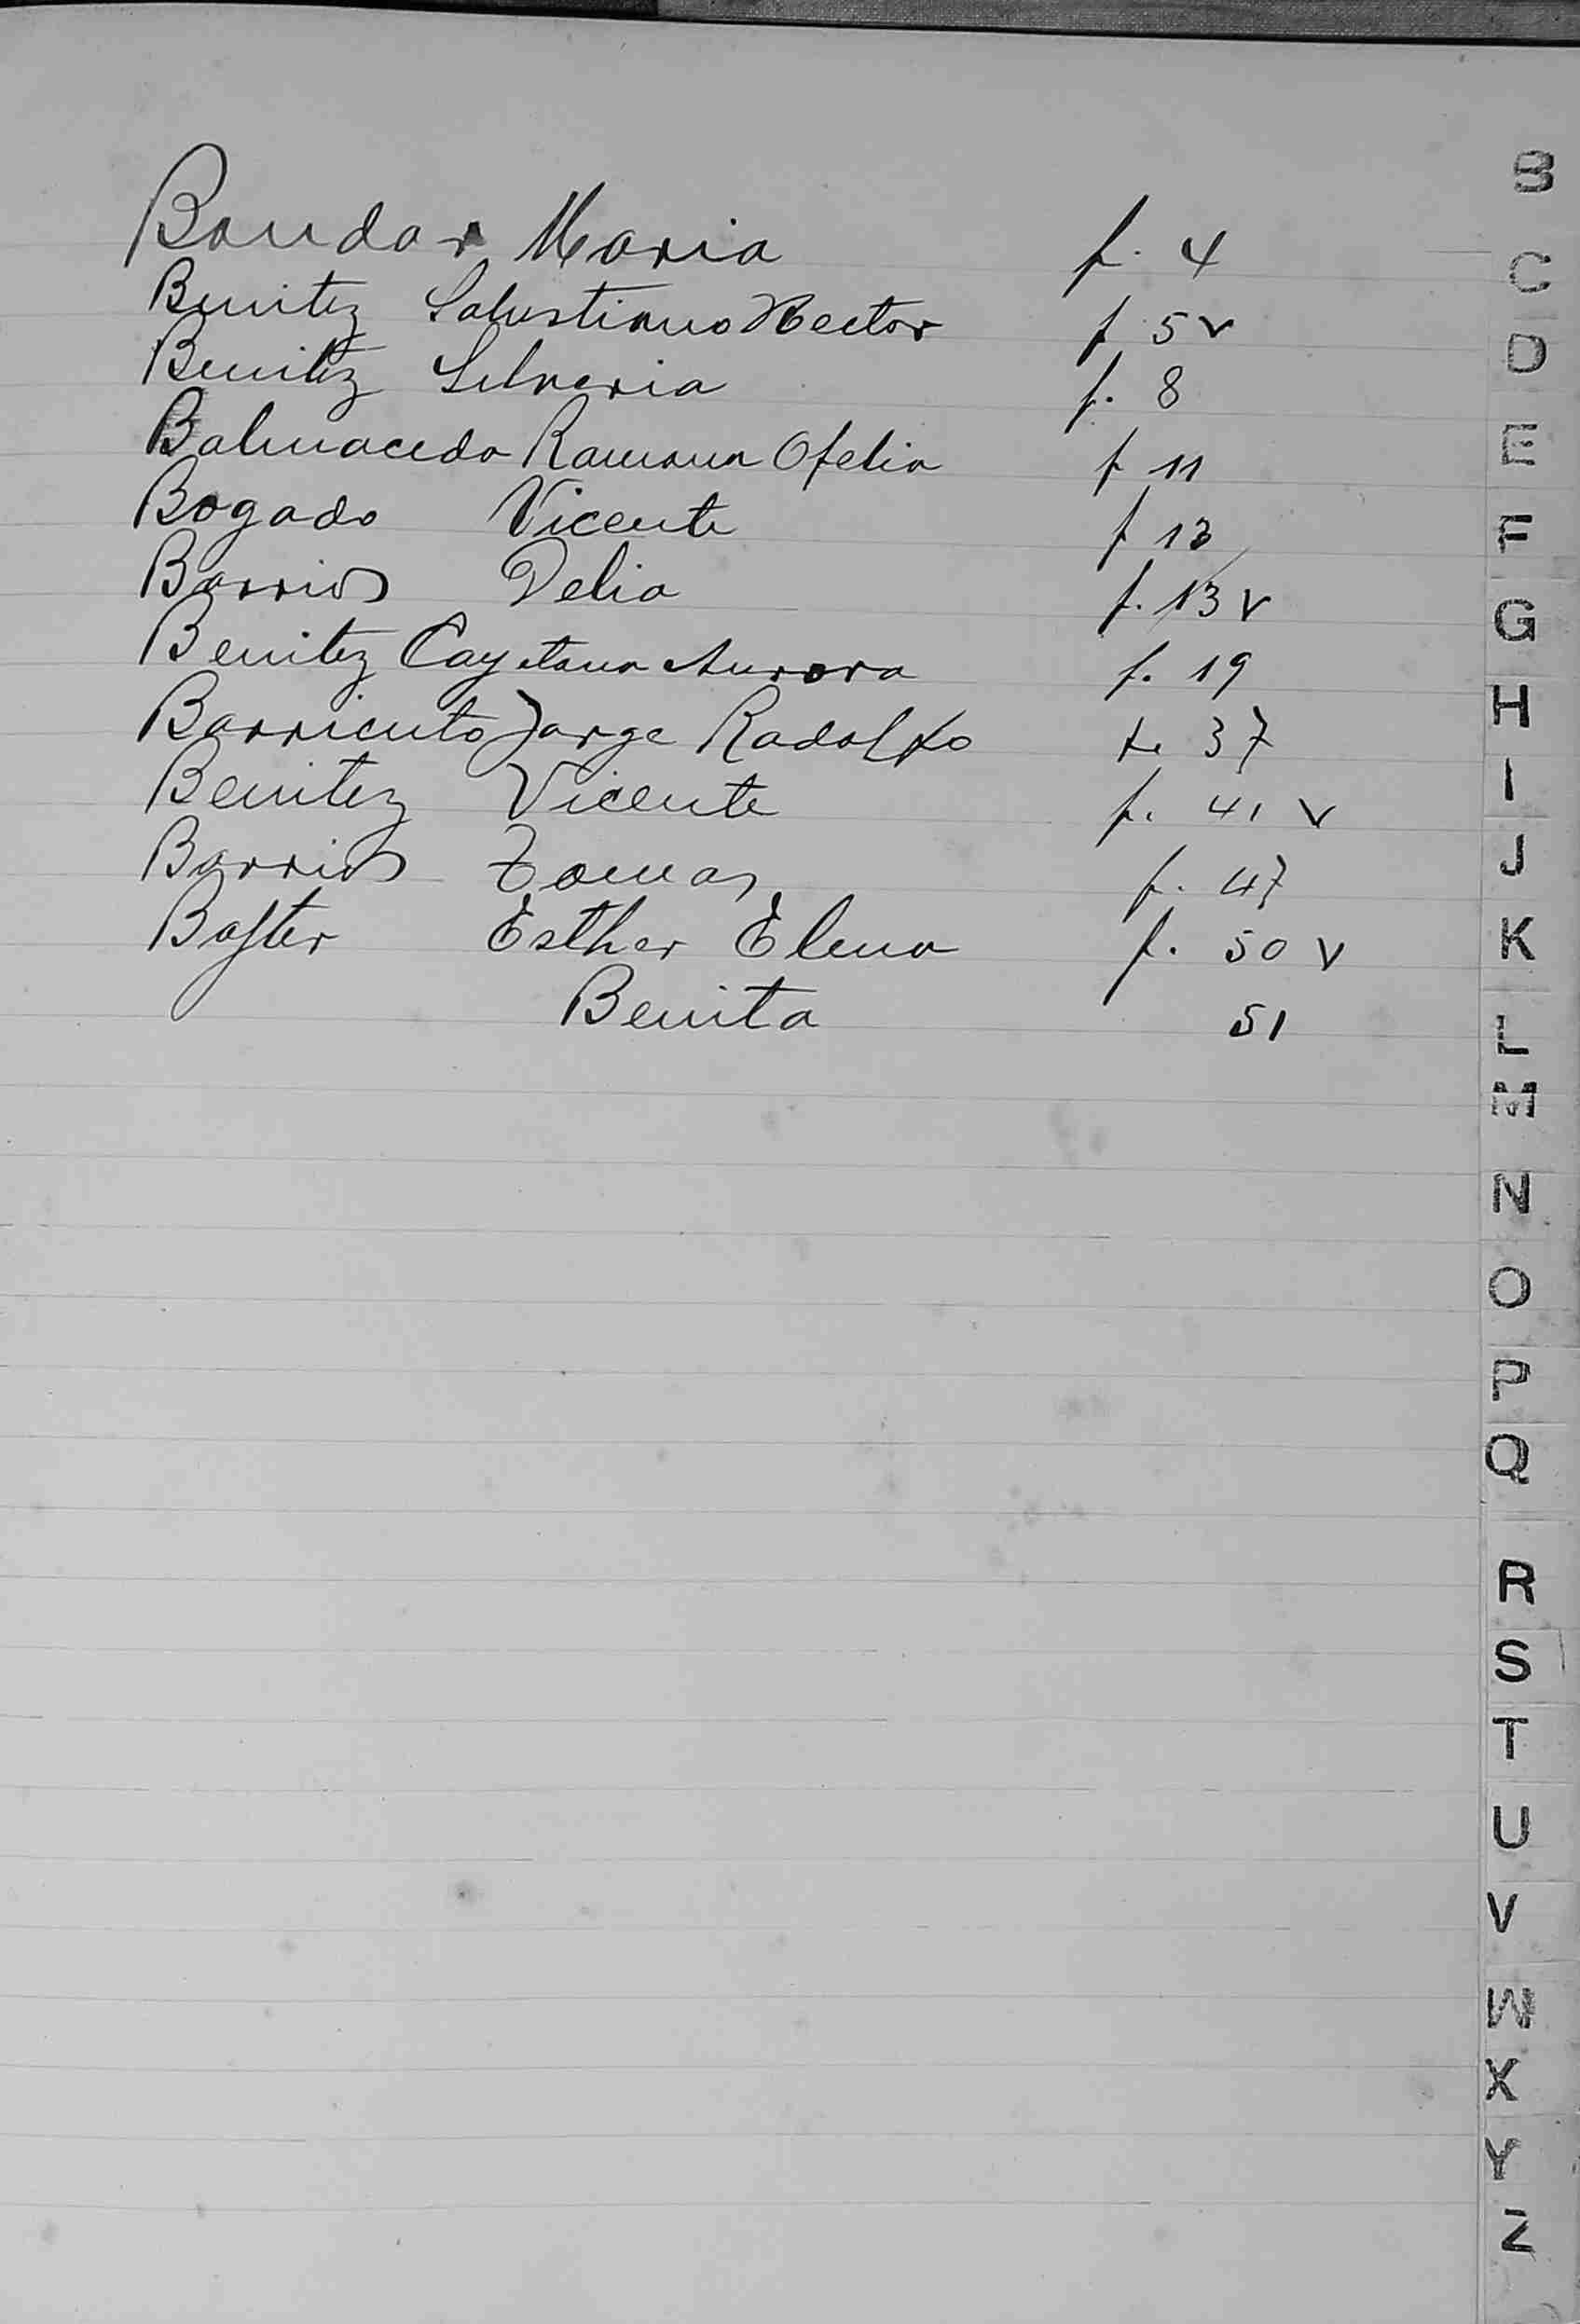 Bondar Maria f. 4
Benitez Salustiano Hector f 5 v
Benitez Silveria f. 8
Balmaceda Ramona Ofelia f 11
Bogado Vicente f 13
Barrios Delia f. 13 v
Benitez Cayetana Aurora f. 19
Barriento Jorge Radolfo f. 37
Benitez Vicente f. 41 v
Barrios Tomas f. 47
Esther Elena f. 50 v
Benita 51
B
C
D
E
F
G
H
I
J
K
L
M
N
O
P
Q
R
S
T
U
V
W
X
Y
Z